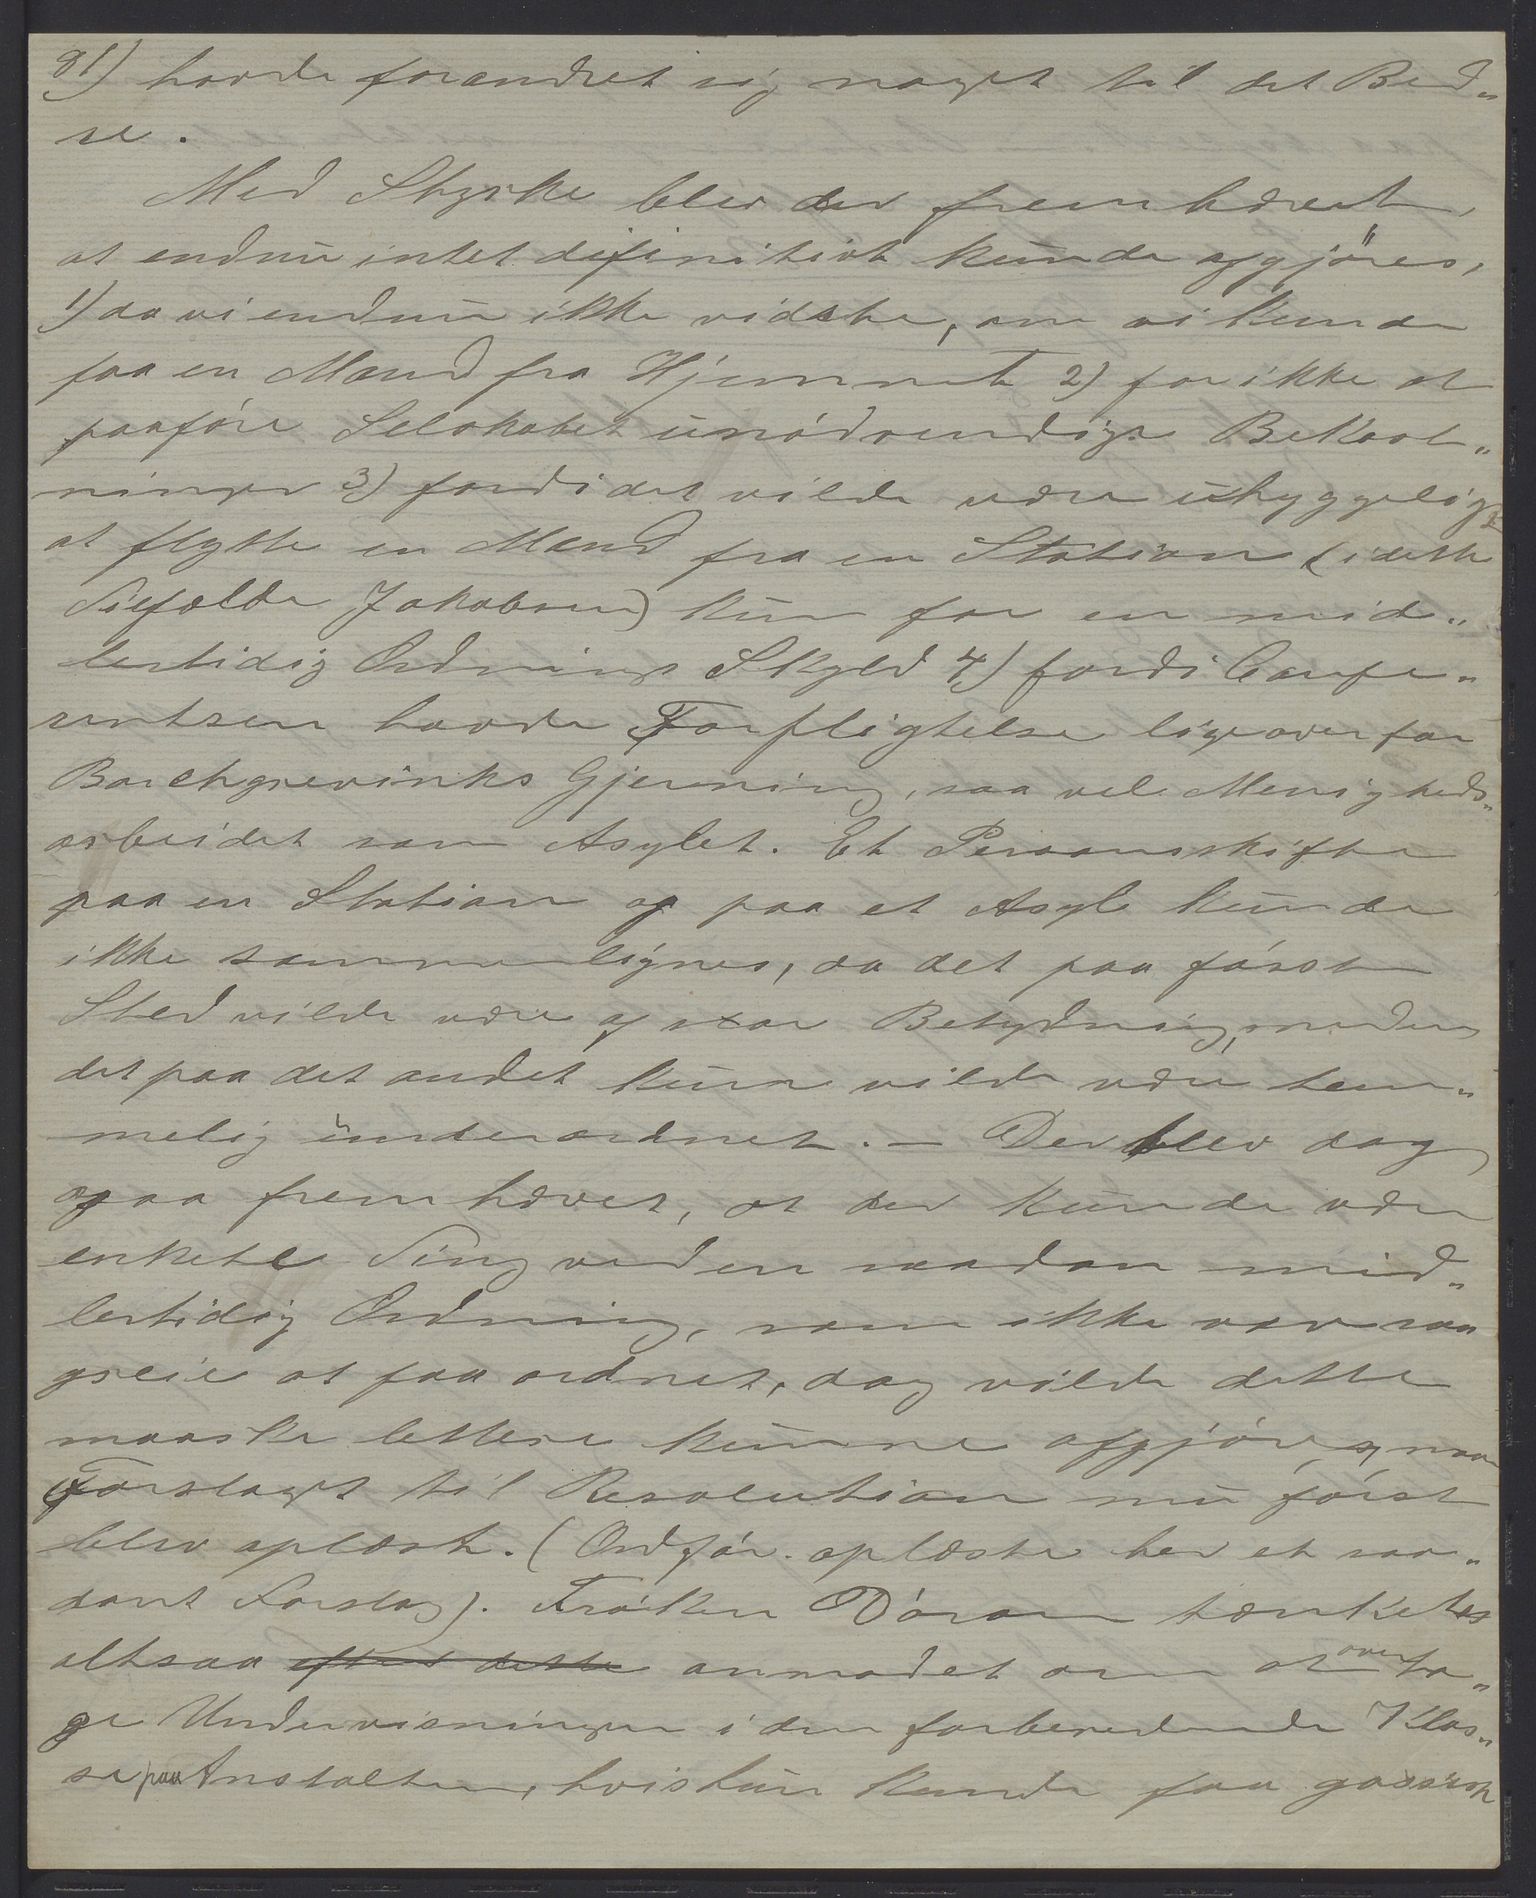 81) havde forandret sig noget til det Bed„
re.
Med Styrke blev der fremhævet,
at endnu intet difinitivt kunde afgjöres,
1) da vi endnu ikke vidste, om vi kunde
faa en Mand fra Hjemmet 2) for ikke at
paaföre Selskabet unödvendige Bekost„
ninger 3) fordi det vilde være uhyggeligt
at flytte en Mand fra en Station (i dette
Tilfælde Jakobsen) kun for en mid„
lertidig Ordnings Skyld 4) fordi Confe„
rentsen havde Forpligtelse ligeoverfor
Borchgrevinks Gjerning, saa vel Menigheds„
arbeidet som Asylet. Et Personskifte
paa en Station og paa et Asyl kunde
ikke sammenlignes, da det paa först
Sted vilde være af stor Betydning, medens
det paa det andet kun vilde være tem„
melig underordnet. — Der blev dog
ogsaa fremhævet, at der kunde være
enkelte Ting ved en saadan mid„
lertidig Ordning, som ikke var saa
greie at faa ordnet, dog vilde dette
maaske lettere kunne afgjöres, naar
Forslaget til Resolution nu först
blev oplæst. (Ordför. oplæste her et saa„
dant Forslag). Fröken Dörum tænkes
altsaa efter dette anmodet om at overta„
ge Undervisningen i den forberedende Klas„
se paa Anstalten, hvis hun kunde faa gassisk